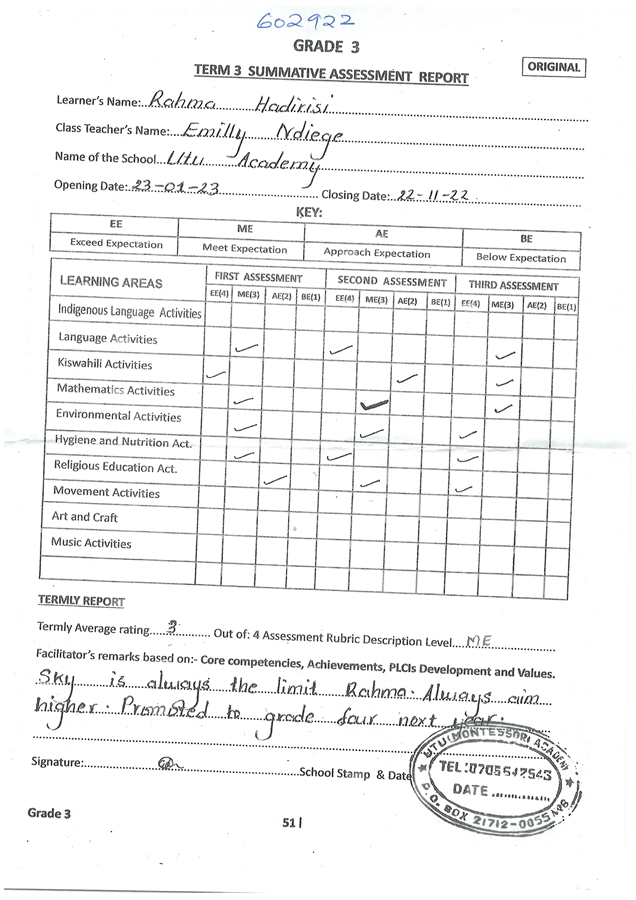 602922
GRADE 3
TERM 3 SUMMATIVE ASSESSMENT REPORT
ORIGINAL
Learner's Name: Rahma Hadirisi
Class Teacher's Name: Emilly Ndiege
Name of the School Utu Academy
Opening Date: 23-01-23 Closing Date: 22-11-22
KEY:
EE ME AE BE
Exceed Expectation Meet Expectation Approach Expectation Below Expectation
LEARNING AREAS FIRST ASSESSMENT SECOND ASSESSMENT THIRD ASSESSMENT
EE(4) ME(3) AE(2) BE(1) EE(4) ME(3) AE(2) BE(1) EE(4) ME(3) AE(2) BE(1)
Indigenous Language Activities
Language Activities ✓ ✓ ✓
Kiswahili Activities ✓ ✓ ✓
Mathematics Activities ✓ ✓ ✓
Environmental Activities ✓ ✓ ✓
Hygiene and Nutrition Act. ✓ ✓ ✓
Religious Education Act. ✓ ✓ ✓
Movement Activities
Art and Craft
Music Activities
TERMLY REPORT
Termly Average rating 3 Out of: 4 Assessment Rubric Description Level ME
Facilitator's remarks based on:- Core competencies, Achievements, PLCIs Development and Values.
Sky is always the limit Rahma. Always aim
higher. Promoted to grade four next year.
Signature: School Stamp & Date
UTU MONTESSORI ACADEMY
TEL: 0705547543
DATE
P.O. BOX 21712-0055
Grade 3
51